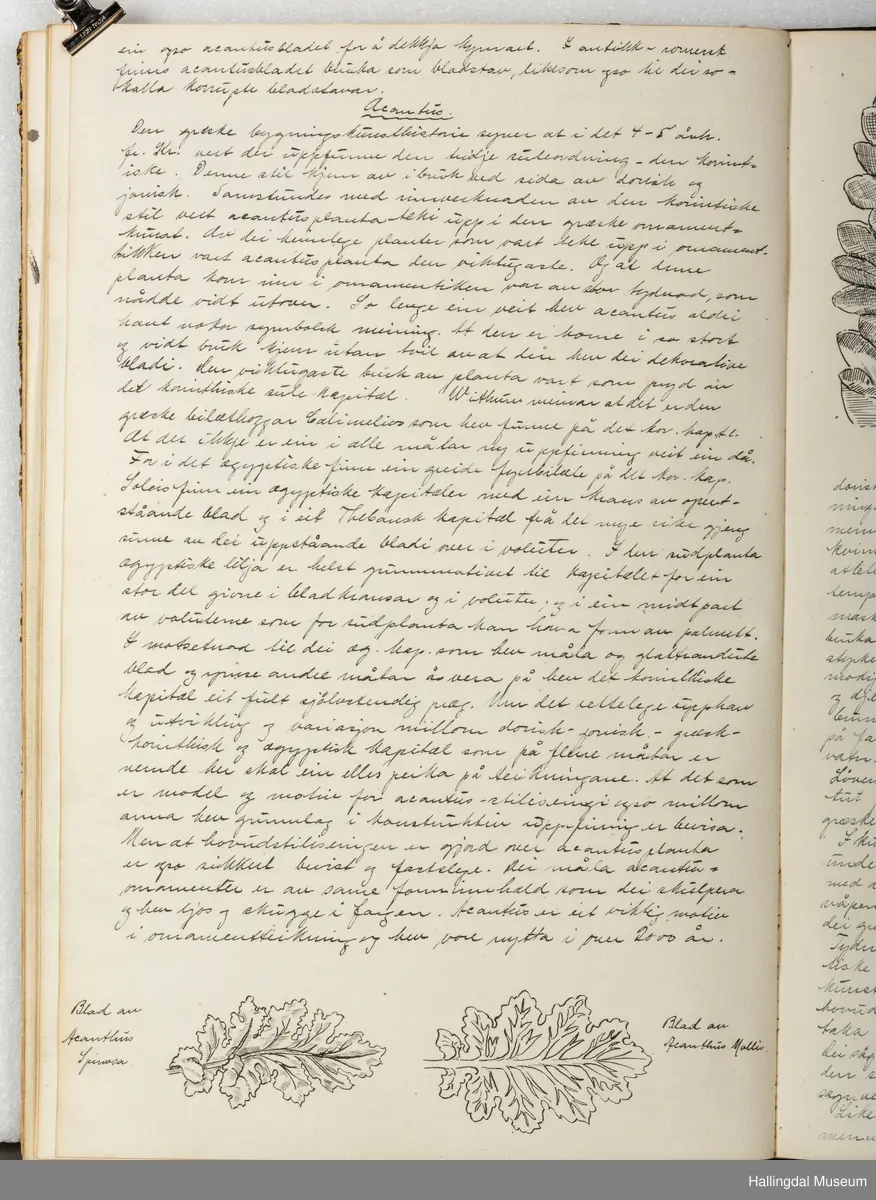 ein også acantusbladet for å dekkja kymaet. I antikk-romersk
finns acantusbladet bruka som bladstav, likesom og so til dei so-
kalla korrupte bladstavar.
Acantus.
Den græske bygningskunsthistorie segner at i det 4-5 årh.
fr. Kr: vert der uppfunne den tridje suleordning - den korint-
iske. Denne stil kjem av i bruk ved sida av dorisk og
jonisk. Samstundes med innverknaden av den korintiske
stil vert acantusplanta teki upp i den græske ornament-
kunst. Av dei heimlege planter som vart teke upp i ornament-
tikken vart acantusplanta den viktugaste. Og at denne
planta kom inn i ornamentiken var av stor tydnad, som
nådde vidt utover. So lenge ein veit hev acantus aldri
havt nokor symbolsk meining. At den er kome i so stort
og vidt bruk kjem utan tvil av at den hev dei dekorative
bladi. Den viktugaste bruk av planta vart som pryd av
det korinthiske sule kapitæl. Withruv meinar at det er den
græske bilæthoggar Calimelios som hev funne på det kor. kapt.
At det ikkje er ein i alle måtar ny uppfinning veit ein då.
For i det ægyptiske finn ein greide fyrebilæte på det kor. kap.
Soleis finn ein ægyptiske kapitæler med ein krans av oprett-
ståande blad og i eit Thebansk kapitæl frå det nye rike gjeng
sume av dei uppståande bladi over i voluter. I den sudplanta
ægyptiske lilja er helst grunnmotivet til kapitælet for ein
stor del givne i bladkransar og i voluter, og i ein midtpart
av voluterne som for sudplanta kan håva form av palmett.
I motsetnad til dei æg. kap. som hev måla og glattrandute
blad og ymse andre måtar ås vera på hev det korinthiske
kapitæl eit fult sjølvstendig præg. Um det rettelege upphav
og utvikling og variasjon millom dorisk- jonisk - græsk-
korinthisk og ægyptisk kapitæl som på fleire måtar er
vende her skal ein elles peika på teikningane. At det som
er model og motiv for acantus-stiliseringi også millom
anna hev grunnlag i konstruktiv uppfinning er bevisa.
Men at hovudstiliseringen er gjord over acantusplanta
er og so sikkert bevist og fastslege. Dei måla acantus-
ornamenter er av same form innhald som dei skulpera
og hev ljos og skugge i fargen. Acantus er eit viktig motiv
i ornamentteikning og hev vore nytta i over 2000 år.
Blad av
Acanthus
Spinosa.
Blad av
Acanthus Mollis.
Hallingdal Museum